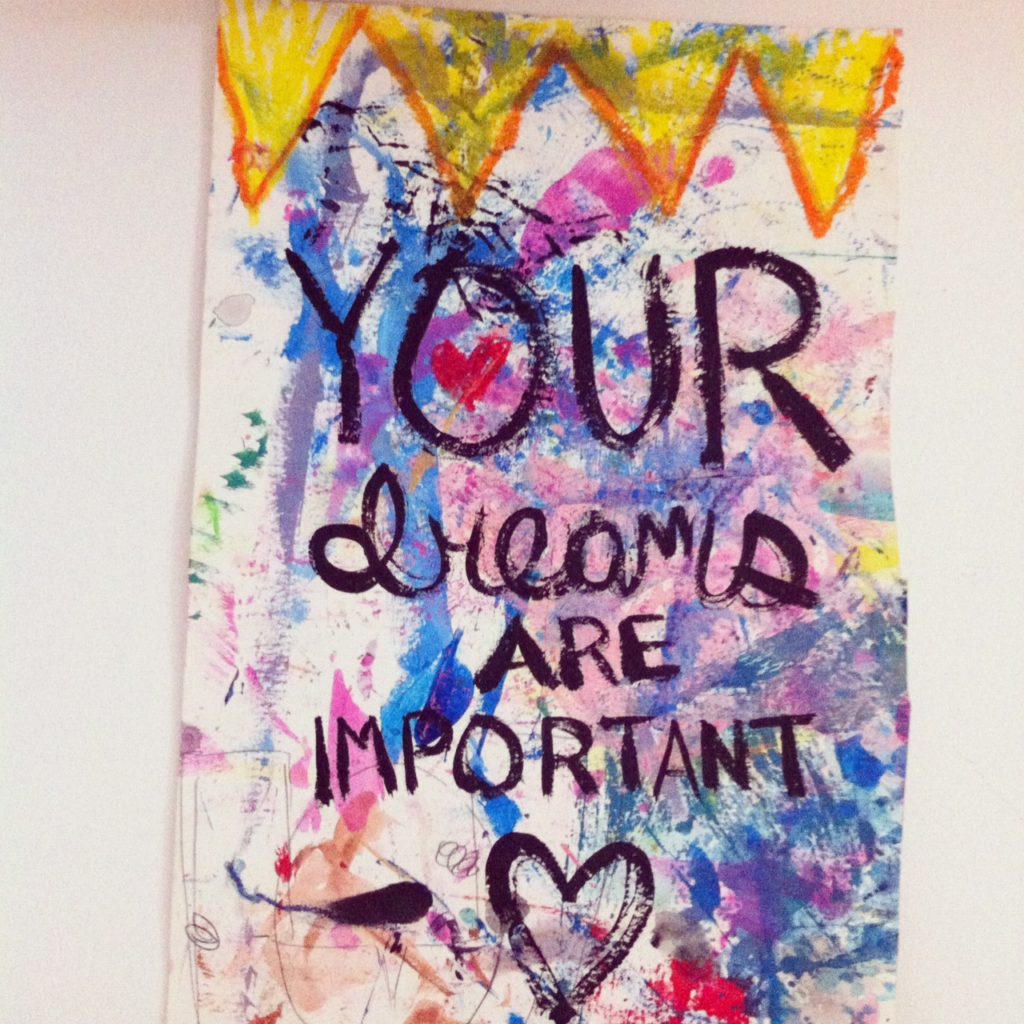 YOUR
dreams
ARE
IMPORTANT